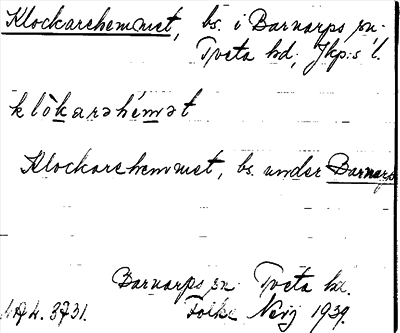 Klockarehemmet, bs. i Barnarps sn.
Tveta hd, Jkp:s l.
klòkarəhémət
Klockarehemmet, bs. under Barnarps
Barnarps sn. Tveta hd.
1939.